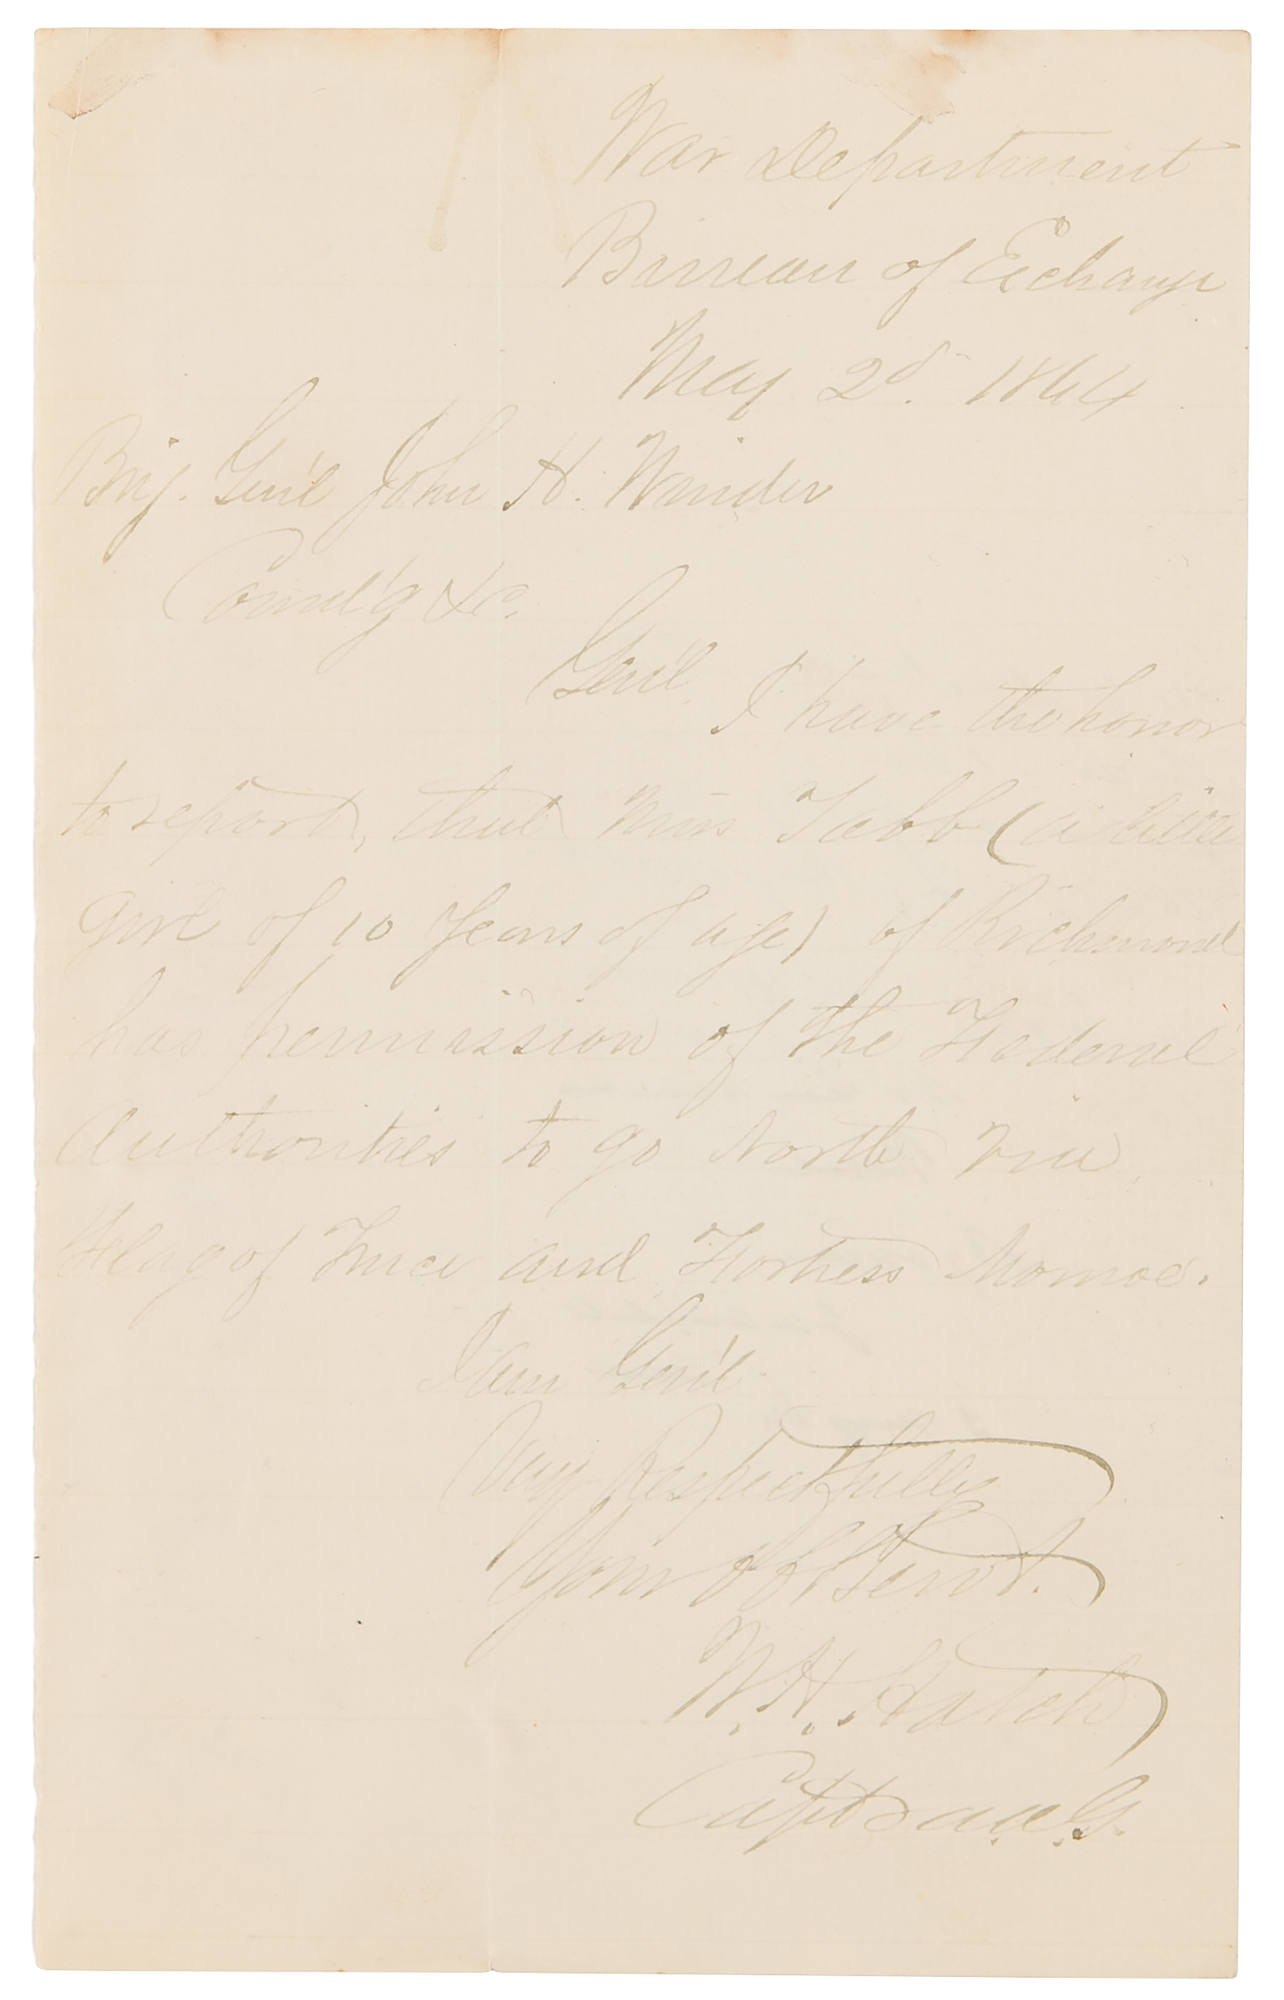 War Department
Bureau of Exchange
May 2d. 1864
Brig. Gen'l John H. Winder
Comd'g &c.
Gen'l.
I have the honor
to report, that Miss Tabb (a little
girl of 10 Years of age) of Richmond
has permission of the Federal
Authorities to go North via
Flag of Truce and Fortress Monroe.
I am Gen'l
Very Respectfully
Your Obt Servt.
W. H. Hatch
Capt & A.A.G.